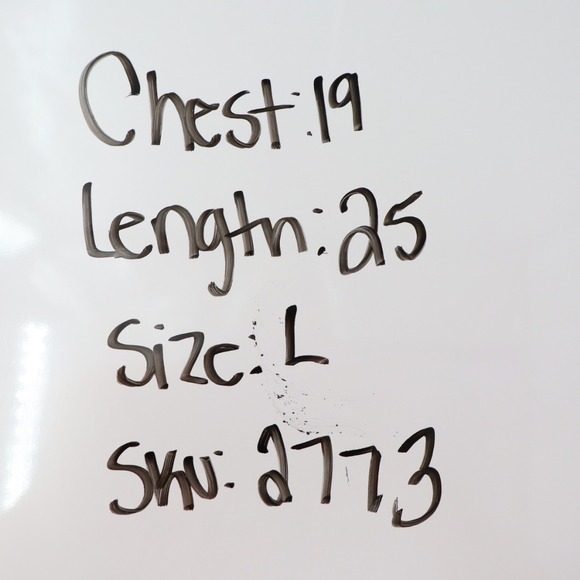 Chest: 19
Length: 25
Size: L
Sku: 2773